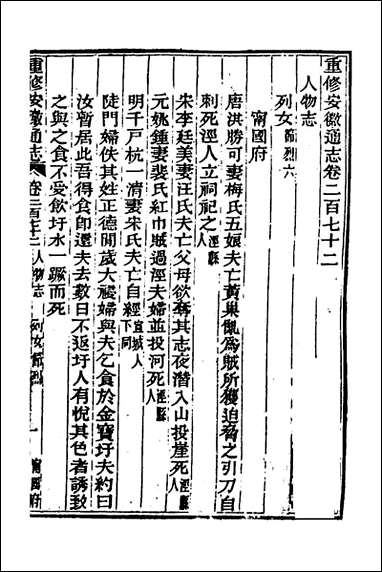 重修安徽通志卷二百七十二
人物志
列女節烈六
甯國府
唐洪勝可妻梅氏五娘夫亡黃巢亂爲賊所獲迫脅之引刀自
刺死涇人立祠祀之涇縣人
宋李廷美妻汪氏夫亡父母欲奪其志夜潛入山投崖死涇縣人
元姚鍾妻裴氏紅巾賊過涇夫婦並投河死涇縣人
明千戸杭一淸妻宋氏夫亡自經宣城人下同
陡門婦佚其姓正德閒歲大祲婦與夫乞食於金寶圩夫約曰
汝暫居此吾得食卽還夫去數日不返圩人有悅其色者誘致
之與之食不受飮圩水一蹶而死
重修安徽通志
卷二百七十二人物志
列女節烈
一
甯國府